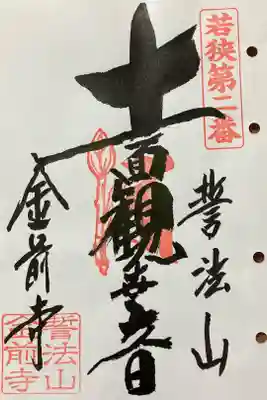 若狭第二番
誓法山
十一面観世音
金前寺
誓法山
金前寺